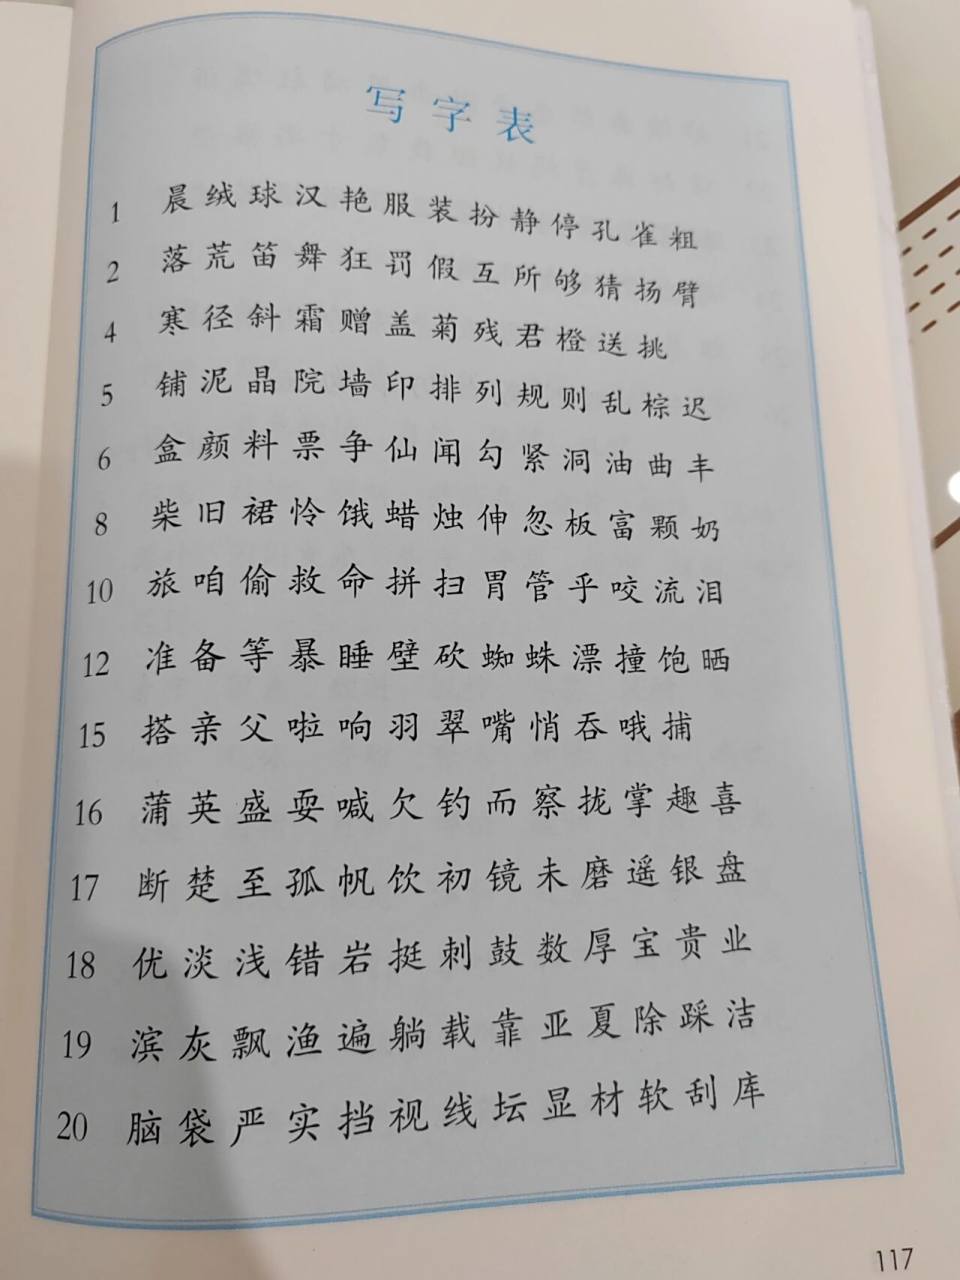 写字表
1 晨绒球汉艳服装扮静停孔雀粗
2 落荒笛舞狂罚假互所够猜扬臂
4 寒径斜霜赠盖菊残君橙送挑
5 铺泥晶院墙印排列规则乱棕迟
6 盒颜料票争仙闻勾紧洞油曲丰
8 柴旧裙怜饿蜡烛伸忽板富颗奶
10 旅咱偷救命拼扫胃管乎咬流泪
12 准备等暴睡壁砍蜘蛛漂撞饱晒
15 搭亲父啦响羽翠嘴悄吞哦捕
16 蒲英盛耍喊欠钓而察拢掌趣喜
17 断楚至孤帆饮初镜未磨遥银盘
18 优淡浅错岩挺刺鼓数厚宝贵业
19 滨灰飘渔遍躺载靠亚夏除踩洁
20 脑袋严实挡视线坛显材软刮库
117